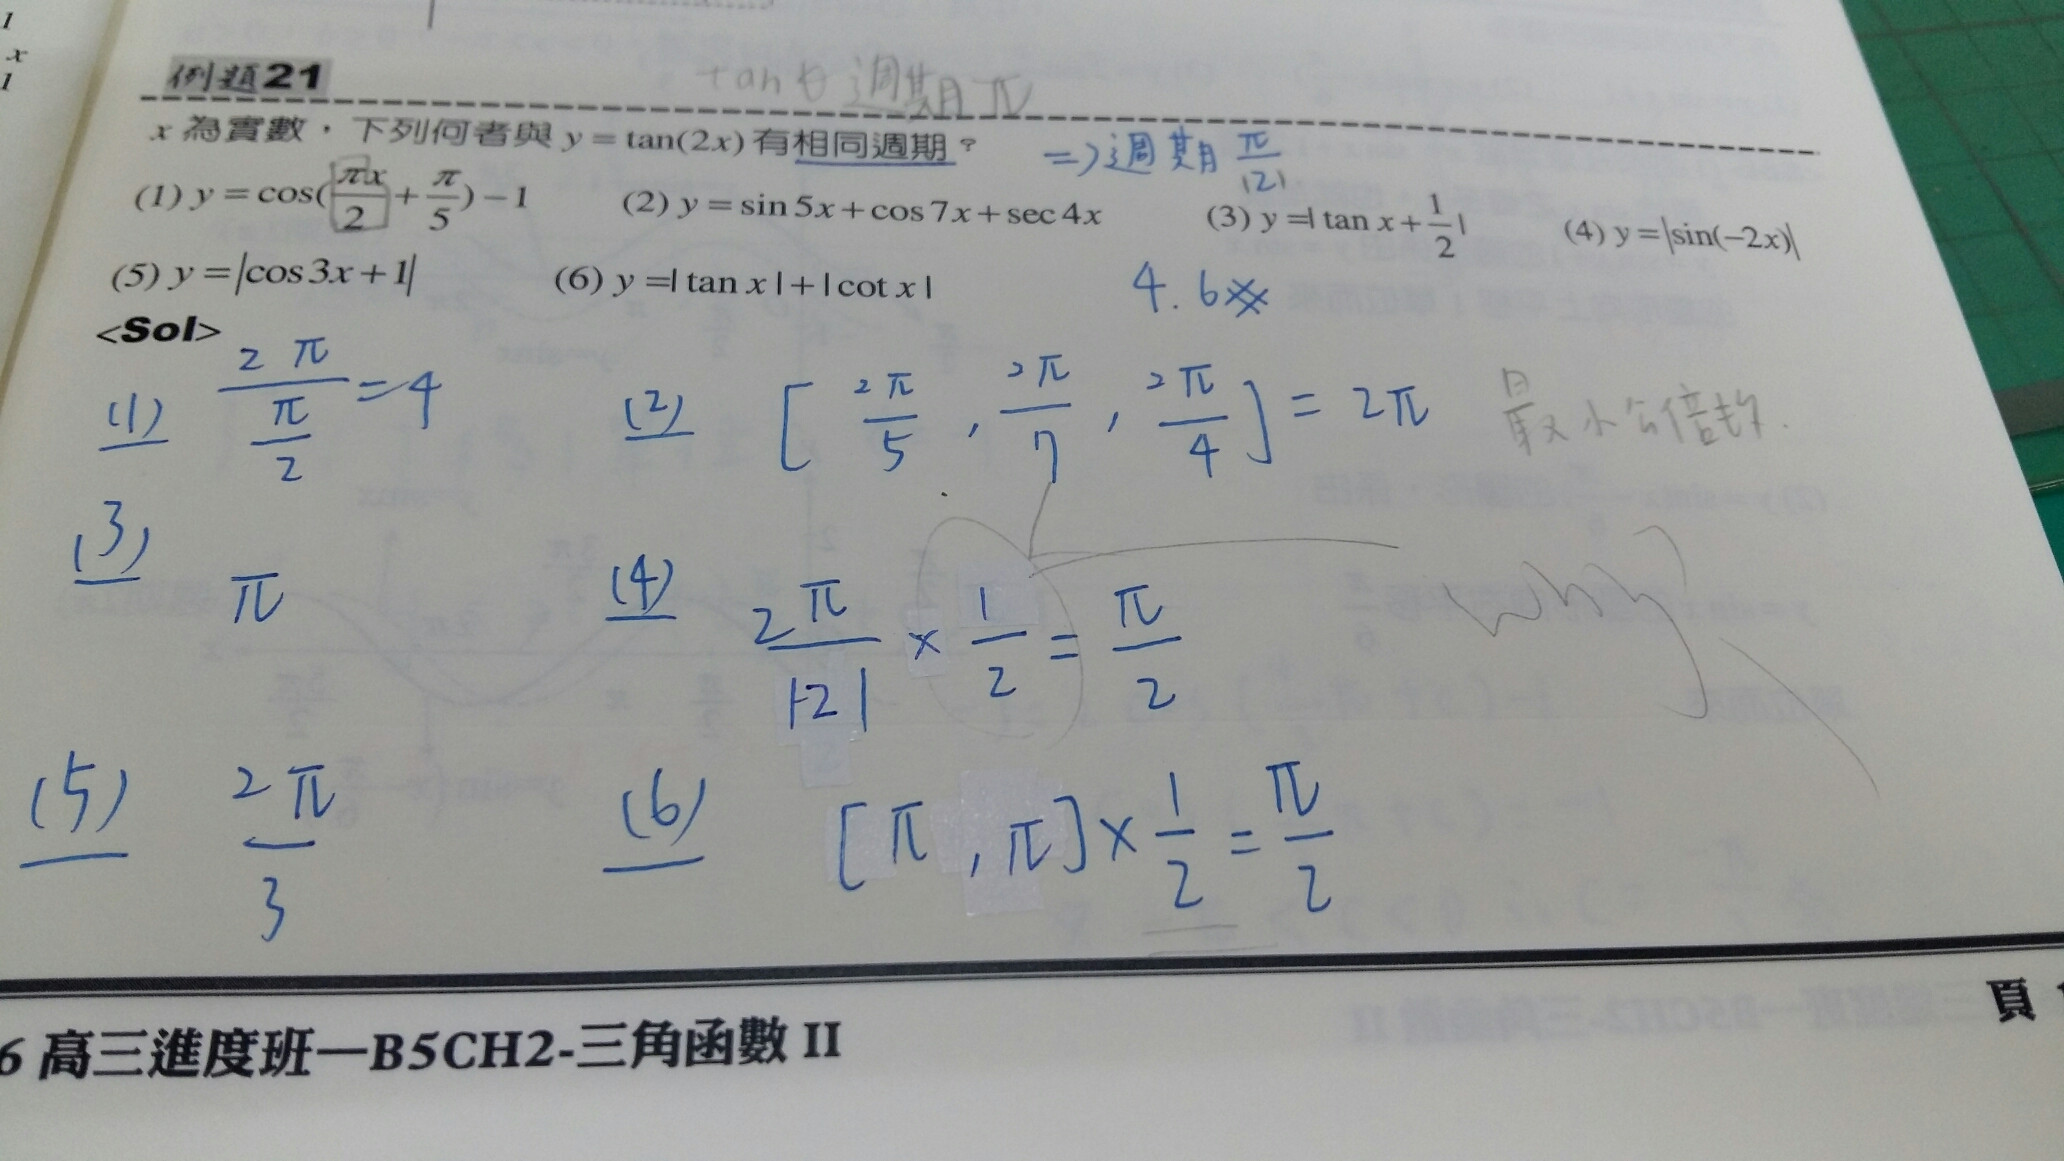 1
x
1
例題21
tanθ 週期π
x 為實數，下列何者與 y = tan(2x) 有相同週期？ => 週期 π/|2|
(1) y = cos(πx/2 + π/5) − 1 (2) y = sin 5x + cos 7x + sec 4x (3) y =| tan x + 1/2 | (4) y = |sin(−2x)|
(5) y = |cos 3x + 1| (6) y =| tan x | + | cot x | 4. 6
<Sol>
(1) 2π/(π/2) = 4 (2) [ 2π/5 , 2π/7 , 2π/4 ] = 2π 最小公倍數.
(3) π (4) 2π/|-2| × 1/2 = π/2 why?
(5) 2π/3 (6) [ π , π ] × 1/2 = π/2
6 高三進度班—B5CH2-三角函數 II
頁